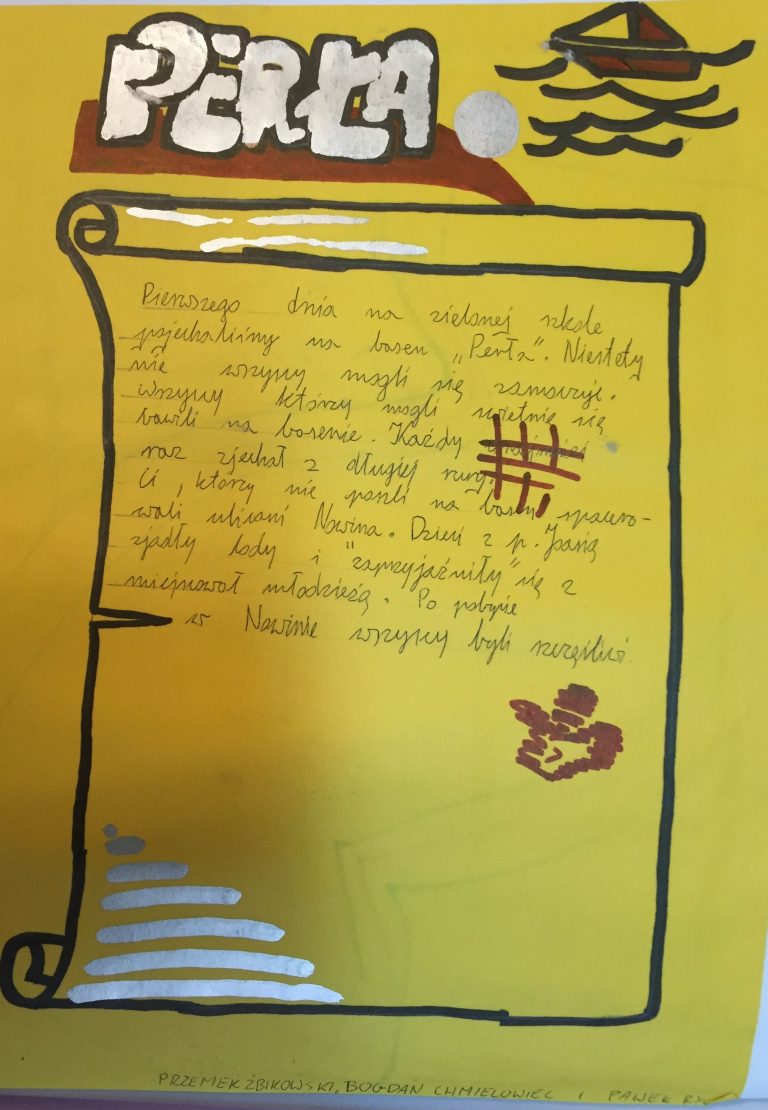 PERŁA
Pierwszego dnia na zielonej szkole
pojechaliśmy na basen „Perła". Niestety
nie wszyscy mogli się
wszyscy którzy mogli świetnie się
bawili na basenie. Każdy
raz zjechał z długiej rury.
Ci, którzy nie poszli na basen spacero-
wali ulicami Nowina. Dzieci z p. Joasią
zjadły lody i "zaprzyjaźniły" się z
miejscową młodzieżą. Po pobycie
w Nowinie wszyscy byli szczęśliwi.
PRZEMEK ŻBIKOWSKI, BOGDAN CHMIELOWIEC I PAWEŁ